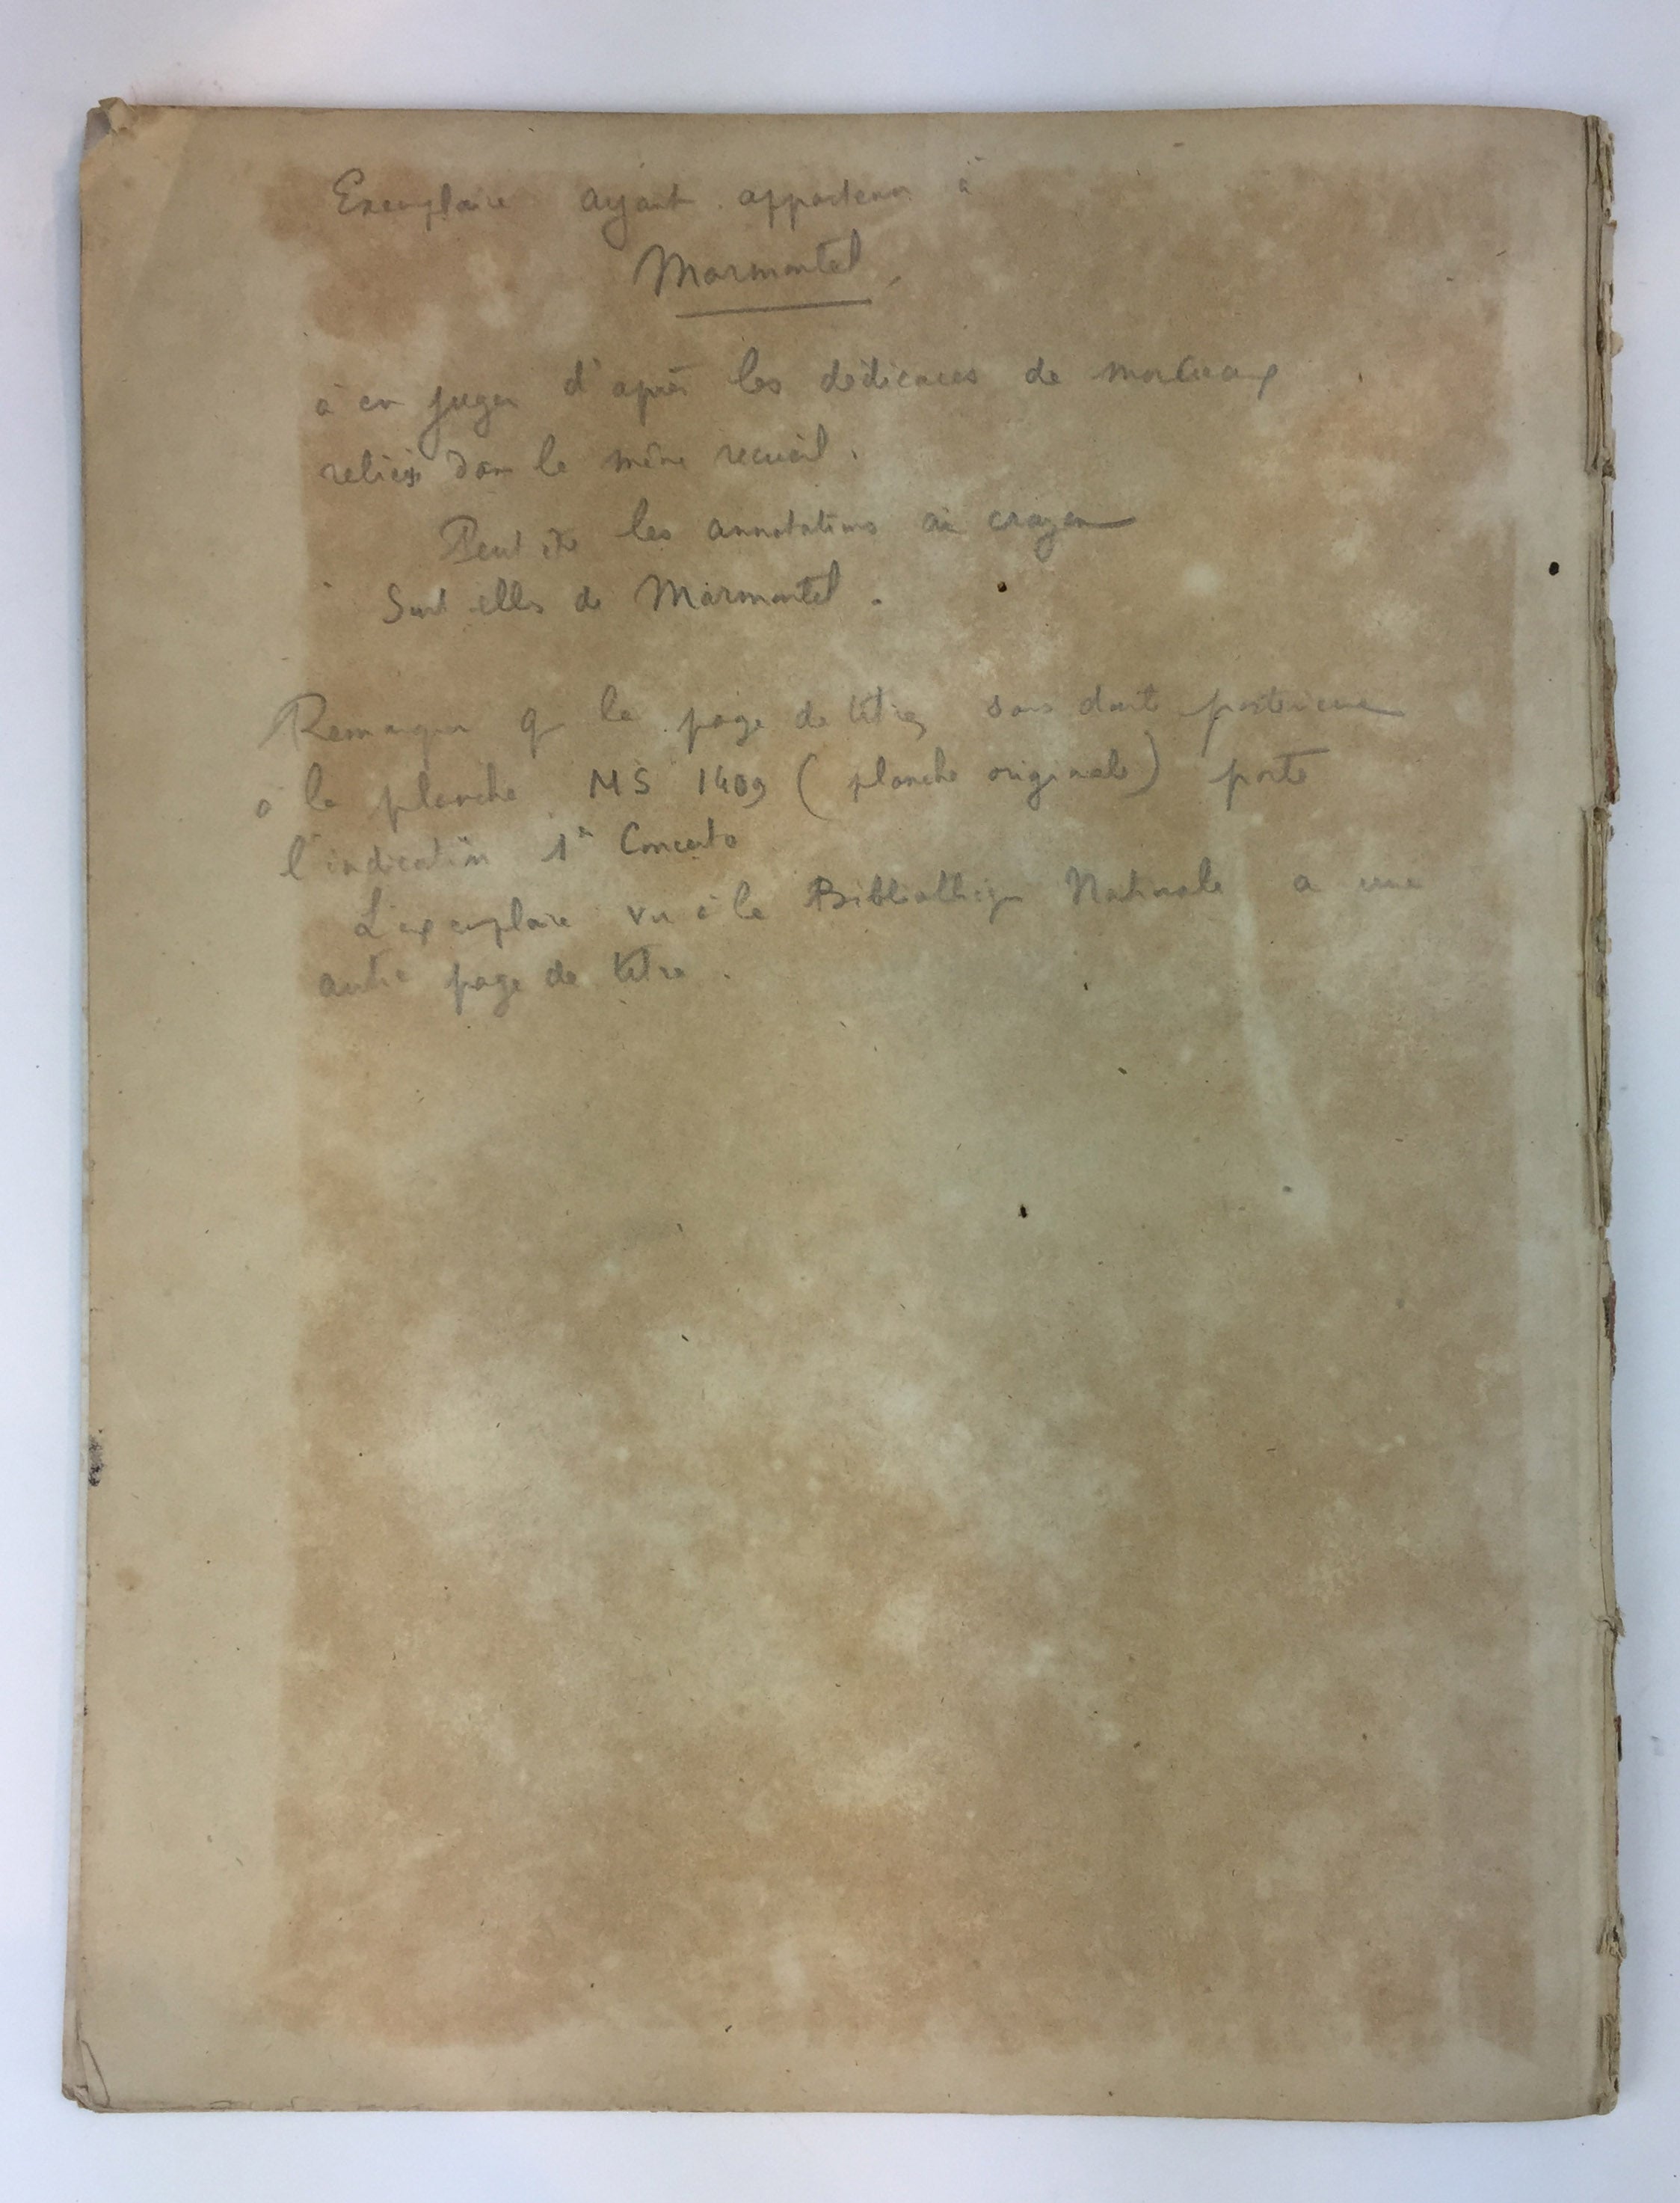 Exemplaire ayant appartenu à
Marmontel,
à en juger d'après les dédicaces de morceaux
reliés dans le même recueil.
Peut être les annotations au crayon
Sont elles de Marmontel.
Remarquer q la page de titre, sans doute postérieure
à la planche MS 1409 (planche originale) porte
l'indication 1er Concerto
L'exemplaire vu à la Bibliothèque Nationale a une
autre page de titre.